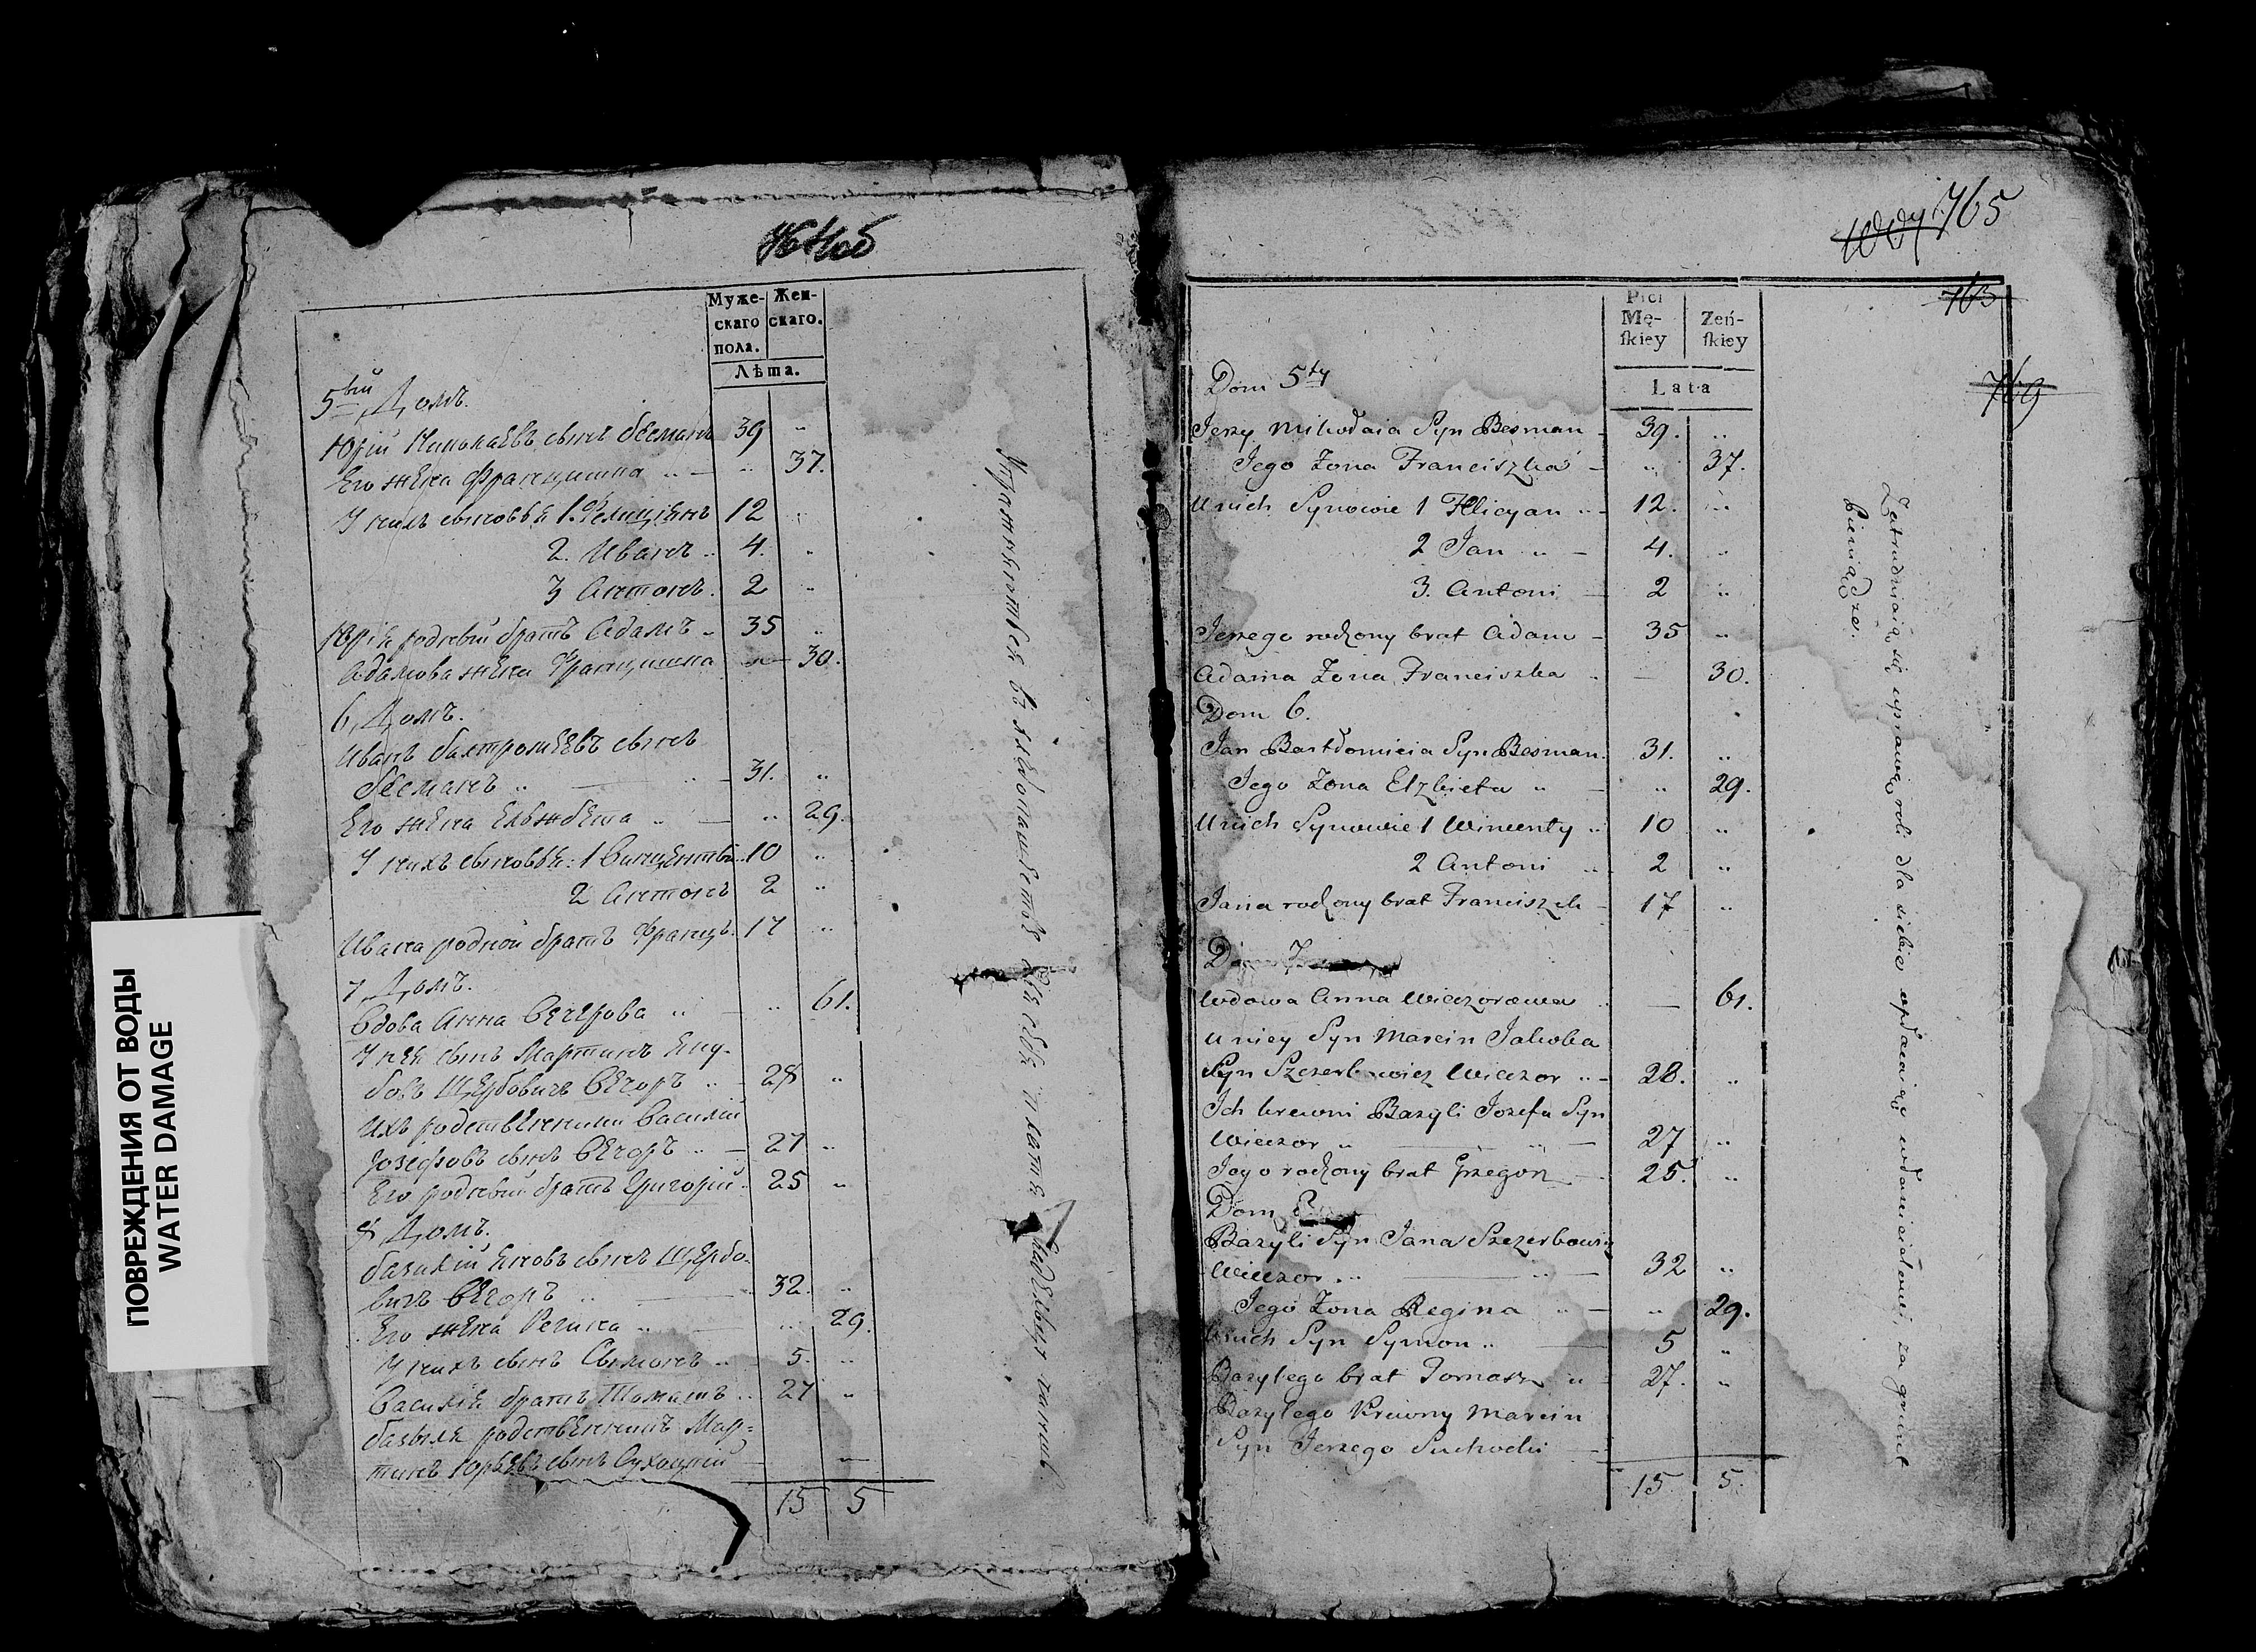 ПОВРЕЖДЕНИЯ ОТ ВОДЫ
WATER DAMAGE
Муже- Жен-
скаго скаго.
пола.
Лѣта.
5тый Домъ.
Юрій Николаевъ сынъ Бесманъ 39 "
Его жена Францишка " — " 37.
У нихъ сыновья 1. Фелиціянъ 12 "
2. Иванъ " 4. "
3 Антонъ. 2 "
Юрія родный братъ Адамъ " 35 "
Адамова жена Францишка — 30.
6, Домъ.
Иванъ Балтромеевъ сынъ
Бесманъ " — " 31. "
Его жена Ельжбета " — " 29.
У нихъ сыновья: 1 Винцентый 10 "
2 Антонъ 2 "
Ивана родной братъ Францъ. 17 "
7, Домъ.
Вдова Анна Вечерова " " 61.
У нея сынъ Мартинъ Яку-
бовъ Щербовичъ Вечоръ " 28 "
Ихъ родственники Василій
Іозефовъ сынъ Вечоръ " — 27 "
Его родный братъ Григорій 25 "
8, Домъ.
Базилій Яновъ сынъ Щербо-
вичъ Вечоръ " — 32. "
Его жена Регина " — " 29.
У нихъ сынъ Сымонъ " 5. "
Василія братъ Томашъ " 27 "
Базыля родственникъ Мар-
тинъ Юрьевъ сынъ Сухоцкій — —
15 5
Упражняются въ хлебопашестве для себя
765
763
769
Płci
Mę- Zeń-
ſkiey ſkiey
Lata
Dom 5ty
Jerzy Mikołaia Syn Besman - 39. "
Jego Zona Franciszka - " 37.
U nich Synowie 1 Felicyan " - 12. "
2 Jan " - 4. "
3. Antoni - 2 "
Jerzego rodzony brat Adam - 35 "
Adama Zona Franciszka - — 30.
Dom 6.
Jan Bartłomieia Syn Besman. 31. "
Jego Zona Elzbieta " - " 29.
U nich Synowie 1 Wincenty " 10 "
2 Antoni " 2 "
Jana rodzony brat Franciszek - 17 "
Dom 7
Wdowa Anna Wieczorowa " — 61.
U niey Syn Marcin Jakoba
Syn Szczerbowicz Wieczor " - 28. "
Ich krewni Bazyli Jozefa Syn
Wieczor " — " — 27 "
Jego rodzony brat Grzegorz - 25. "
Dom 8
Bazyli Syn Jana Szczerbowicz
Wieczor " — " — 32 "
Jego Zona Regina " - " 29.
U nich Syn Symon " — 5 "
Bazylego brat Tomasz " - 27. "
Bazylego Krewny Marcin
Syn Jerzego Suchocki —
15 5.
Zatrudniaią się uprawą roli dla siebie opłacaiąc za grunt
pieniądze.